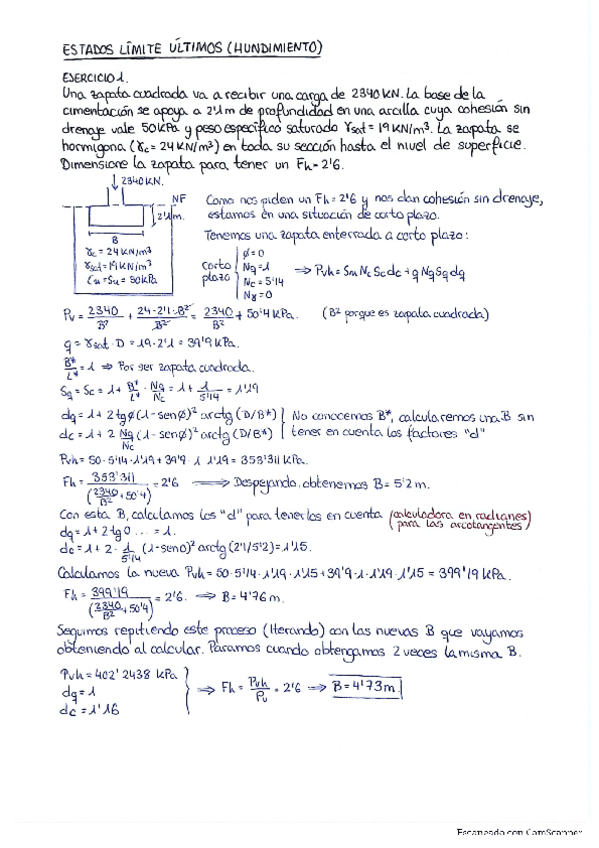 ESTADOS LÍMITE ÚLTIMOS (HUNDIMIENTO)
EJERCICIO 1.
Una zapata cuadrada va a recibir una carga de 2340 KN. La base de la
cimentación se apoya a 2'1m de profundidad en una arcilla cuya cohesión sin
drenaje vale 50KPa y peso específico saturado γsat = 19 KN/m³. La zapata se
hormigona (γc = 24 KN/m³) en toda su sección hasta el nivel de superficie.
Dimensione la zapata para tener un Fh = 2'6.
2340 KN.
NF
2'1m.
B
γc = 24 KN/m³
γsat = 19 KN/m³
Cu = Su = 50KPa
Como nos piden un Fh = 2'6 y nos dan cohesión sin drenaje,
estamos en una situación de corto plazo.
Tenemos una zapata enterrada a corto plazo:
Corto plazo | ϕ = 0
Nq = 1
Nc = 5'14
Nγ = 0
⇒ Pvh = Su Nc Sc dc + q Nq Sq dq
Pv = 2340/B² + 24·2'1·B²/B² = 2340/B² + 50'4 KPa. (B² porque es zapata cuadrada)
q = γsat · D = 19·2'1 = 39'9 KPa.
B*/L* = 1 ⇒ Por ser zapata cuadrada.
Sq = Sc = 1 + B*/L* · Nq/Nc = 1 + 1/5'14 = 1'19
dq = 1 + 2 tgϕ (1 - senϕ)² arctg (D/B*)
dc = 1 + 2 Nq/Nc (1 - senϕ)² arctg (D/B*)
No conocemos B*, calcularemos una B sin
tener en cuenta los factores "d"
Pvh = 50·5'14·1'19 + 39'9·1·1'19 = 353'311 KPa.
Fh = 353'311/(2340/B² + 50'4) = 2'6 ⇒ Despejando, obtenemos B = 5'2 m.
Con esta B, calculamos los "d" para tenerlos en cuenta (calculadora en radianes para las arcotangentes)
dq = 1 + 2 tg 0 ... = 1.
dc = 1 + 2 · 1/5'14 (1 - sen0)² arctg (2'1/5'2) = 1'15.
Calculamos la nueva Pvh = 50·5'14·1'19·1'15 + 39'9·1·1'19·1'15 = 399'19 KPa.
Fh = 399'19/(2340/B² + 50'4) = 2'6. ⇒ B = 4'76 m.
Seguimos repitiendo este proceso (Iterando) con las nuevas B que vayamos
obteniendo al calcular. Paramos cuando obtengamos 2 veces la misma B.
Pvh = 402'2438 KPa
dq = 1
dc = 1'16
⇒ Fh = Pvh/Pv = 2'6 ⇒ B = 4'73 m.
Escaneado con CamScanner